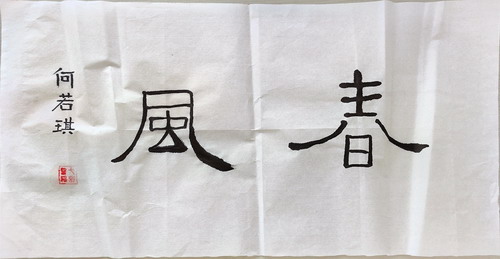 春風
何若琪